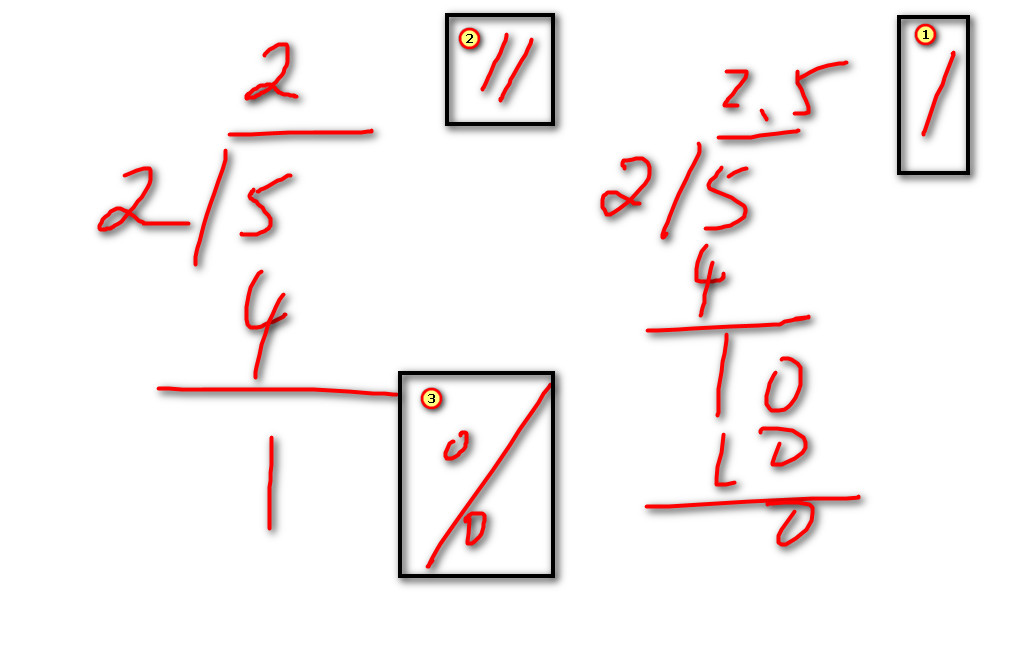 2
2/5
4
1
2 //
3 %
2.5
2/5
4
10
10
0
1 /